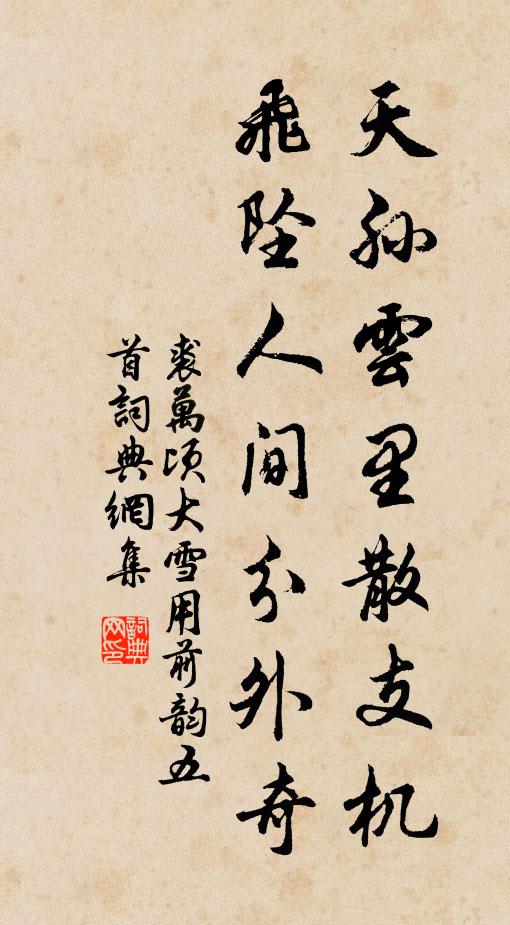 天孙雲里散支机
飛墜人间分外奇
裘萬顷大雪用前韵五
首詞典網集
詞典网印